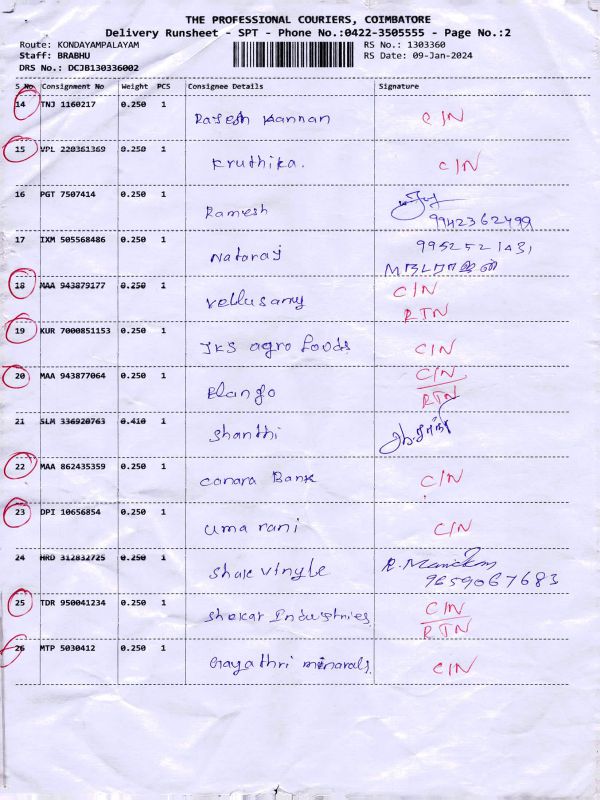 THE PROFESSIONAL COURIERS, COIMBATORE
Delivery Runsheet - SPT - Phone No.:0422-3505555 - Page No.:2
Route: KONDAYAMPALAYAM RS No.: 1303360
Staff: BRABHU RS Date: 09-Jan-2024
DRS No.: DCJB130336002
S No. Consignment No Weight PCS Consignee Details Signature
14 TNJ 1160217 0.250 1 Rajesh Kannan C/N
15 VPL 220361369 0.250 1 Kruthika. C/N
16 PGT 7507414 0.250 1 Ramesh
9942362499
17 IXM 505568486 0.250 1 Nataraj 995252143,
நடராஜன்
18 MAA 943879177 0.250 1 Vellusamy C/N
RTN
19 KUR 7000851153 0.250 1 JKS agro foods C/N
20 MAA 943877064 0.250 1 Elango C/N
RTN
21 SLM 336920763 0.410 1 Shanthi
22 MAA 862435359 0.250 1 Canara Bank C/N
23 DPI 10656854 0.250 1 Uma rani C/N
24 HRD 312832725 0.250 1 R. Manickam
9659067683
25 TDR 950041234 0.250 1 Shekar Industries C/N
RTN
26 MTP 5030412 0.250 1 Gayathri minarals. C/N